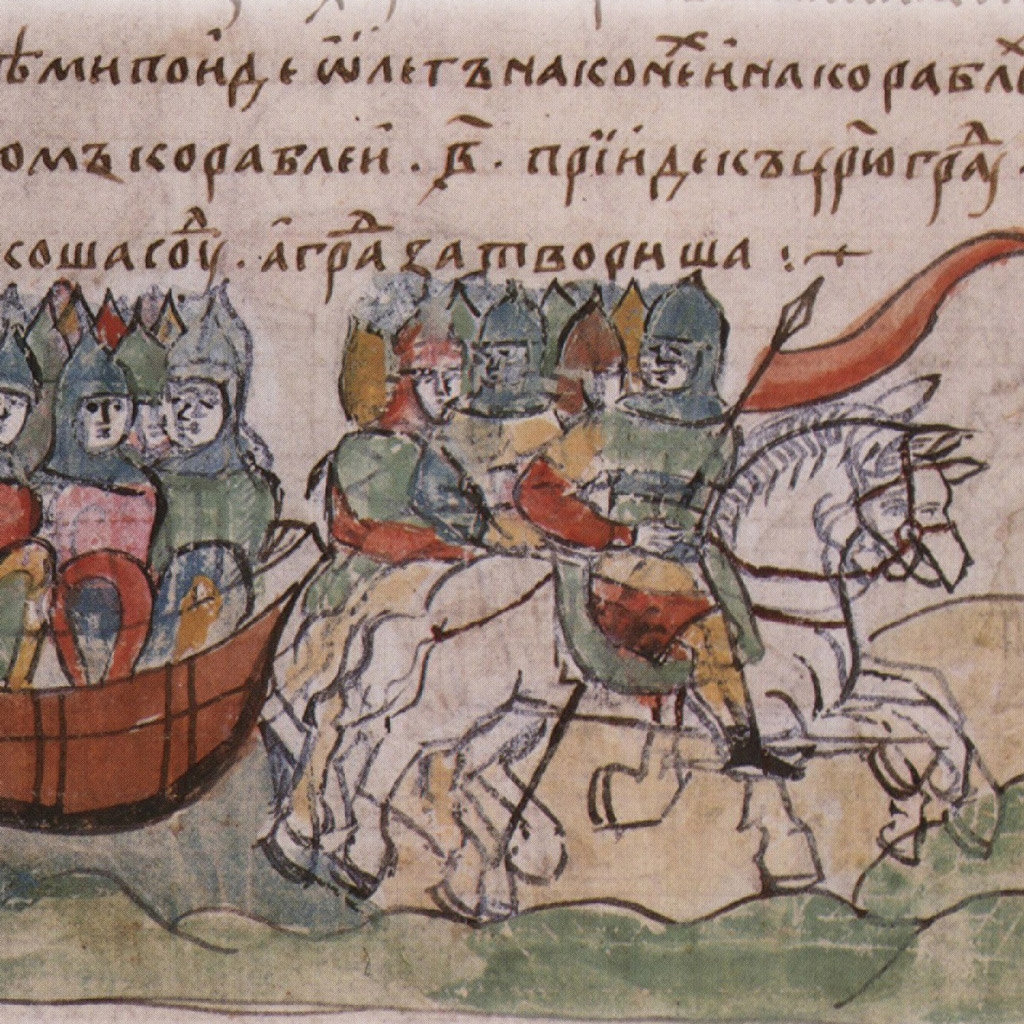 ѣми поиде ѡлегъ на конеⷯ и на кораблеⷯ
омъ кораблеи . в҃ . прїиде къ цр҃ю граⷣу .
коша соуⷣ . а граⷣ затвориша :+